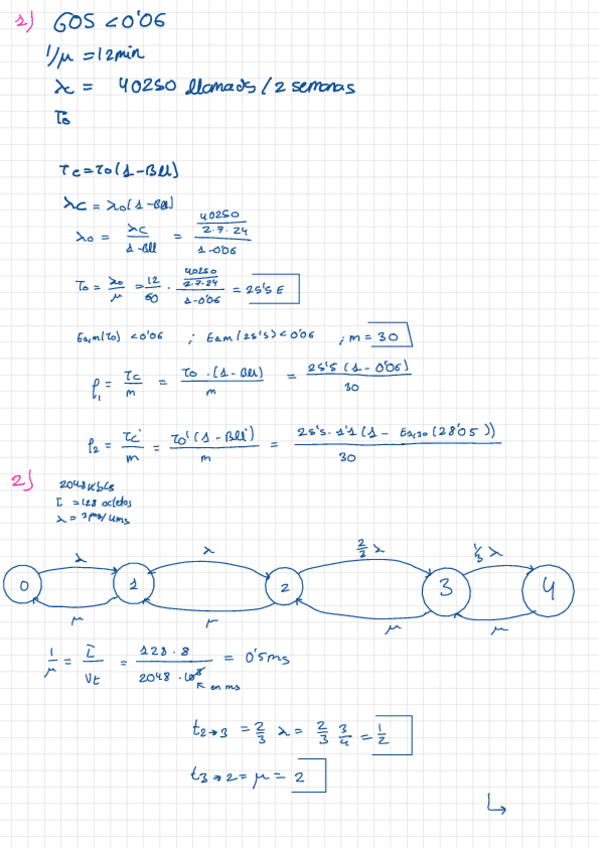 1)
GOS < 0'06
1/μ = 12 min
λc = 40250 llamads / 2 semanas
To
Tc = To (1 - Bll)
λc = λo (1 - Bll)
λo = λc / (1 - Bll) = (40250 / 2·7·24) / (1 - 0'06)
To = λo / μ = 12/60 · (40250 / 2·7·24) / (1 - 0'06) = 25'5 E
E1,m(To) < 0'06 ; E1,m(25'5) < 0'06 ; m = 30
ρ1 = Tc / m = To · (1 - Bll) / m = 25'5 (1 - 0'06) / 30
ρ2 = Tc' / m = To' (1 - Bll') / m = 25'5 · 1'1 (1 - E1,30 (28'05)) / 30
2)
2048 kb/s
L = 128 octetos
λ = 3 pqs/4ms
λ λ 2/3 λ 1/3 λ
0 1 2 3 4
μ μ μ μ
1/μ = L / Vt = 128 · 8 / 2048 · 10³ = 0'5 ms
en ms
t2→3 = 2/3 λ = 2/3 3/4 = 1/2
t3→2 = μ = 2